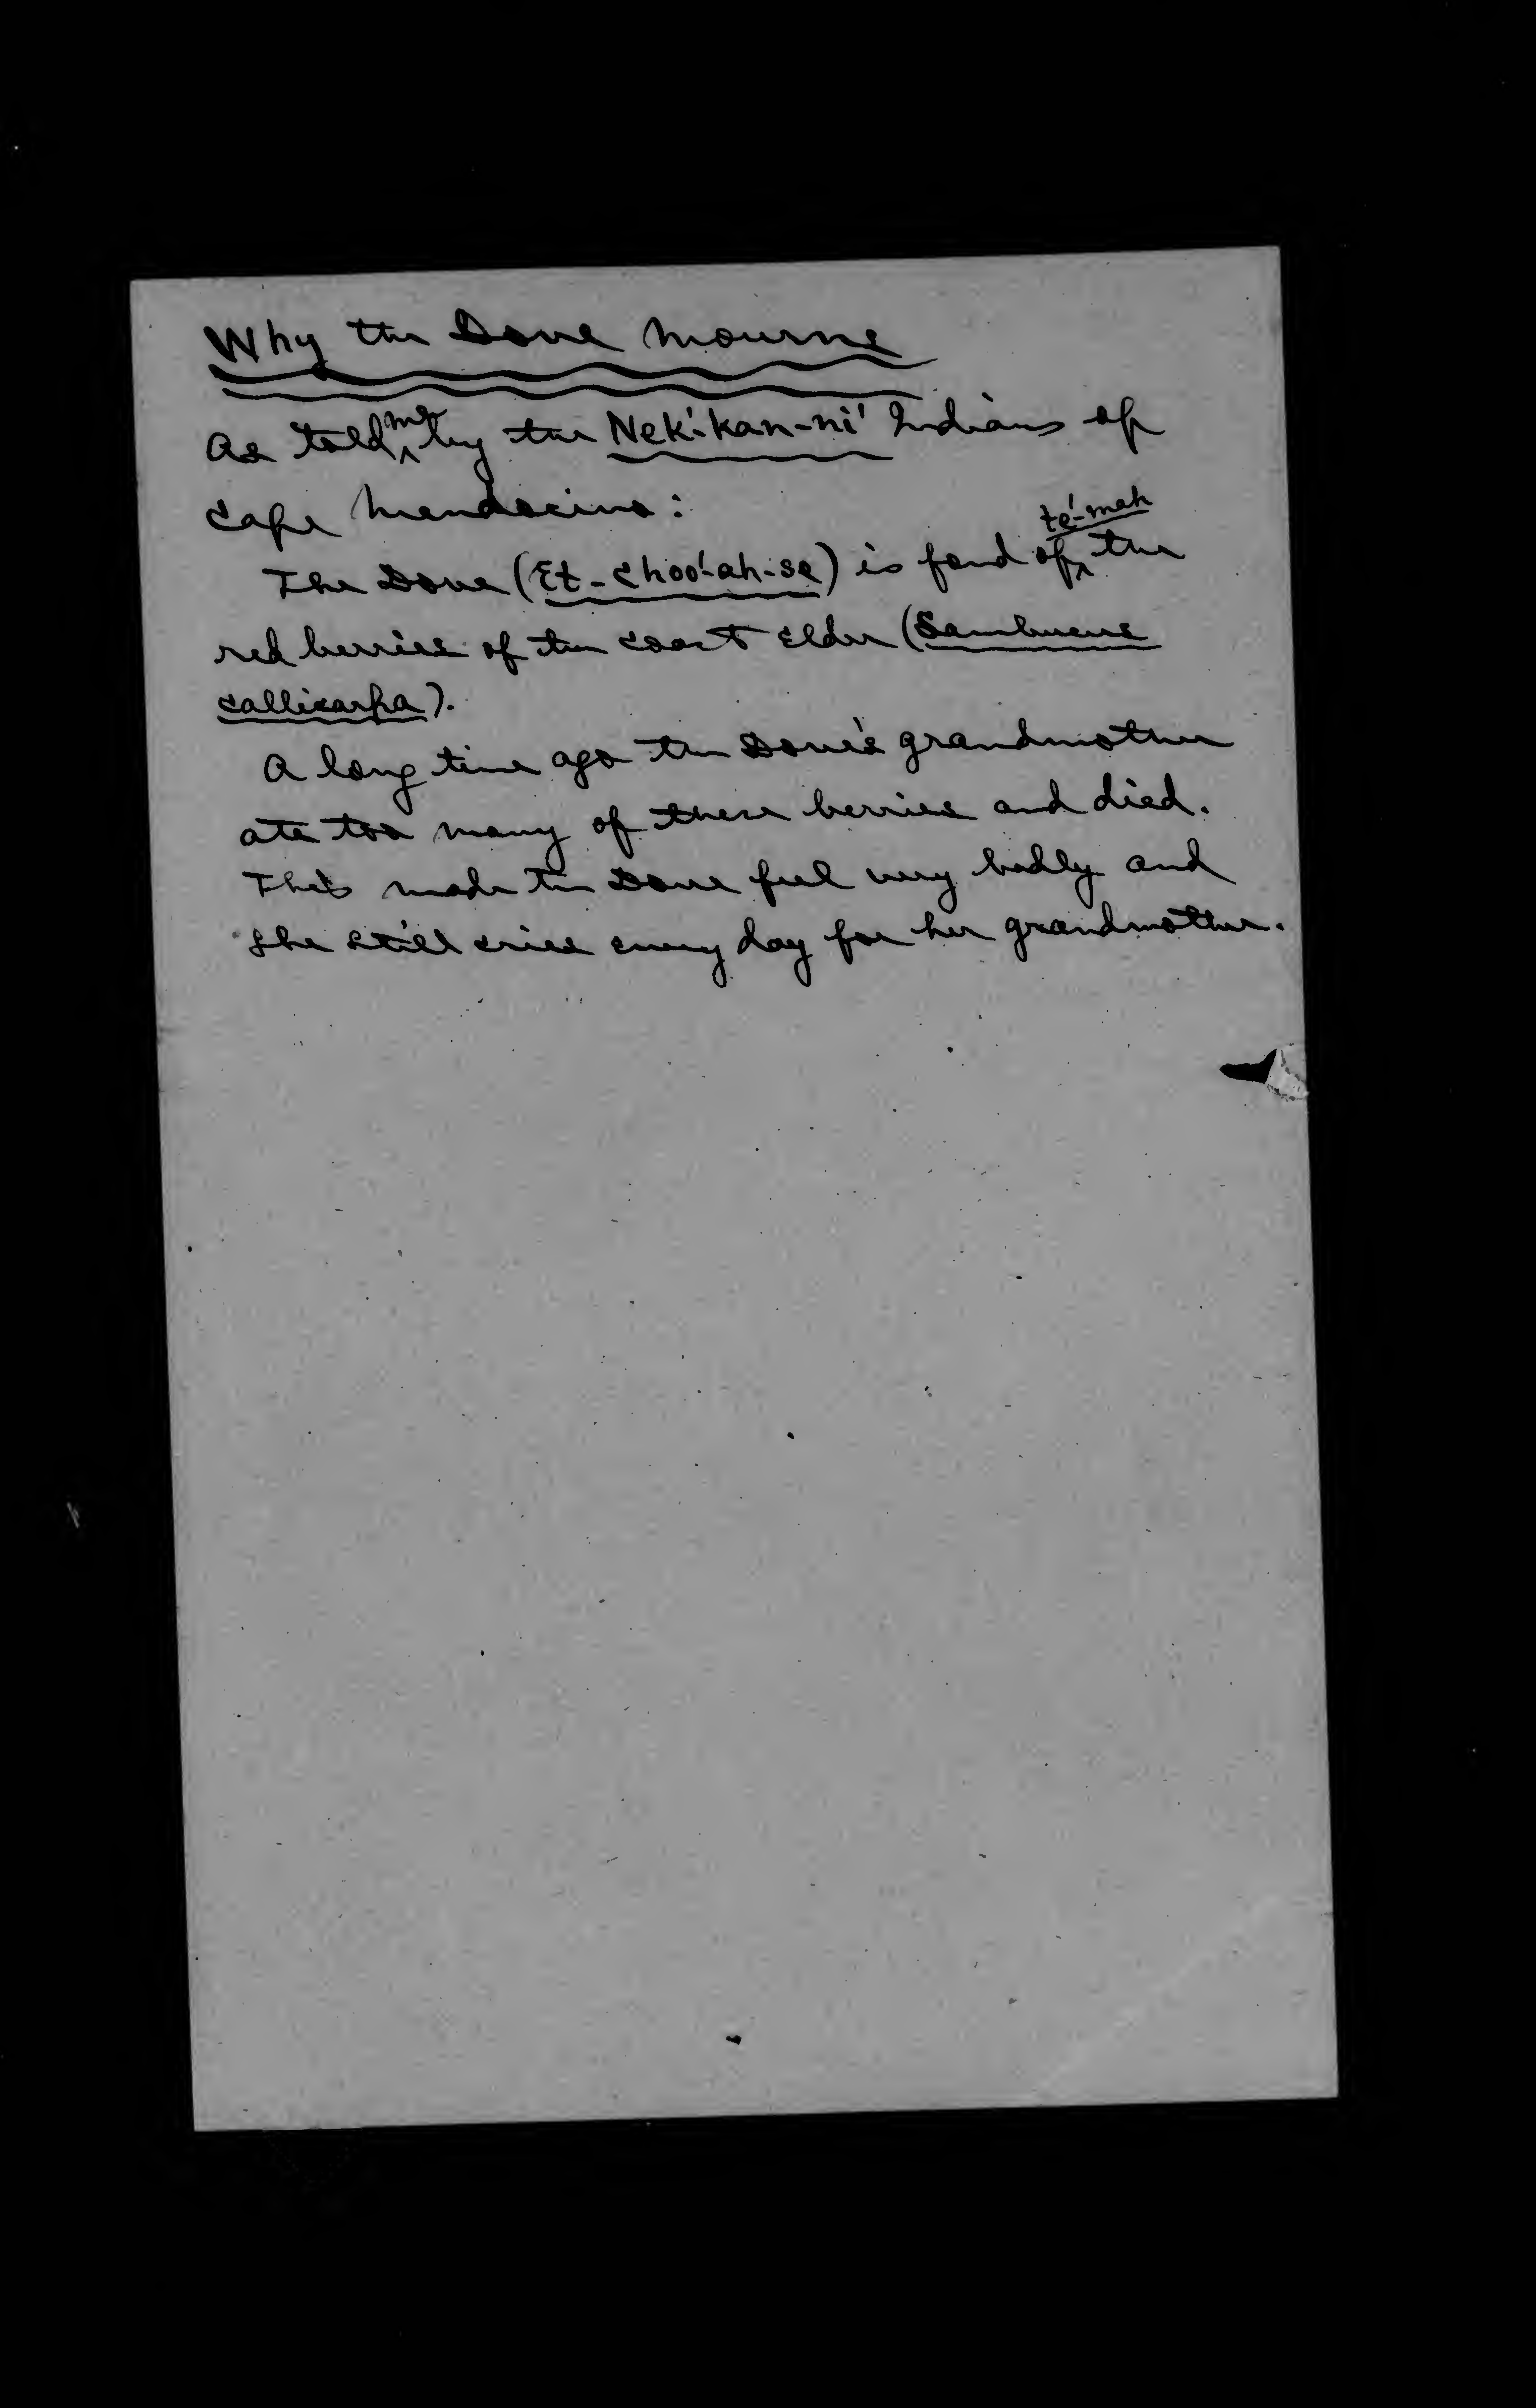 Why the Dove Mourns
As told me by the Nek'-kan-ni' Indians of
Cape Mendocino:
The Dove (Et-choo'-ah-se) is fond of te'-mah the
red berries of the coast Elder (Sambucus
callicarpa).
A long time ago the Dove's grandmother
ate too many of these berries and died.
This made the Dove feel very badly and
she still cries every day for her grandmother.